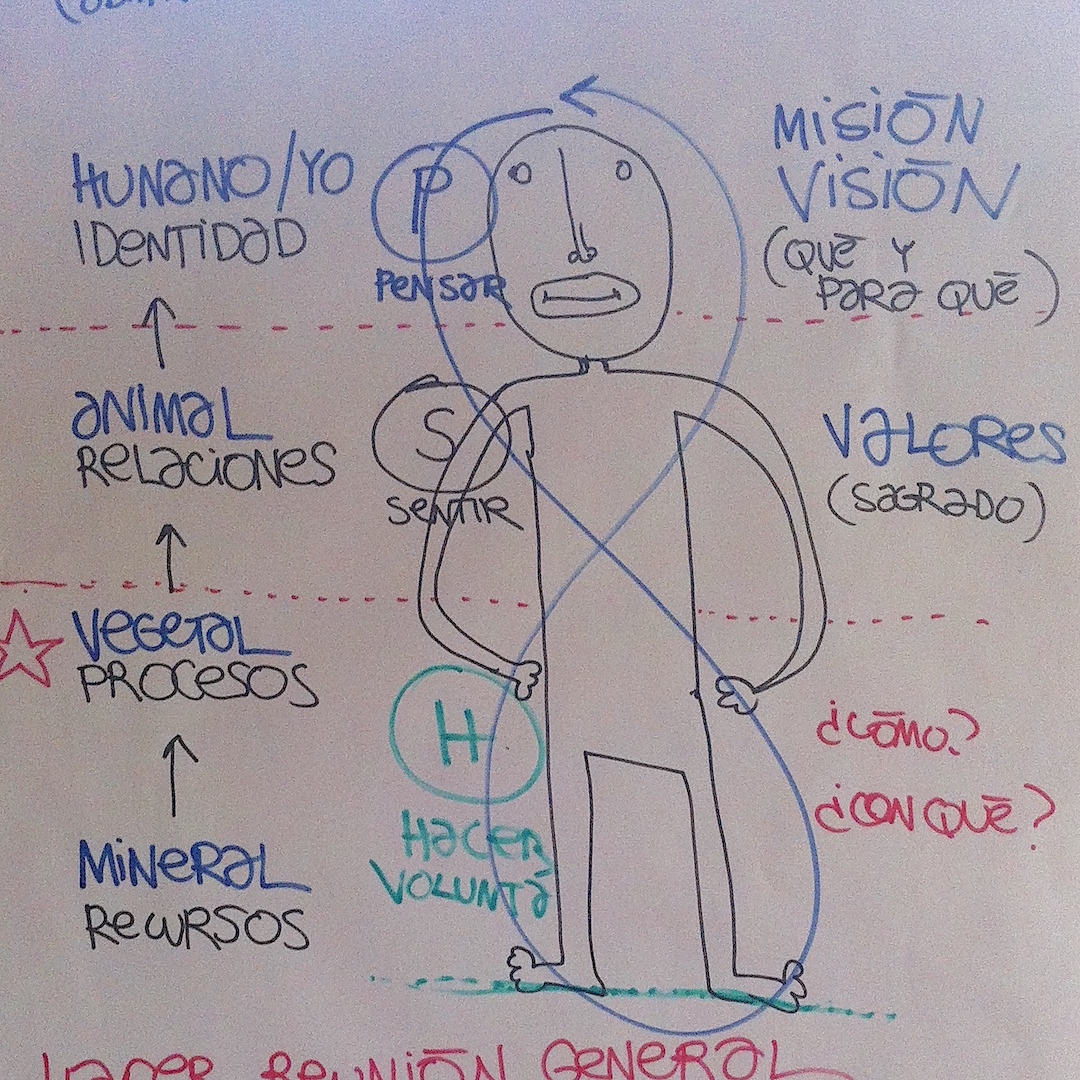 HUNANO/YO
IDENTIDAD
P
PENSAR
MISIÓN
VISIÓN
(QUÉ Y
PARA QUÉ)
ANIMAL
RELACIONES
S
SENTIR
VALORES
(SAGRADO)
VEGETAL
PROCESOS
H
HACER
VOLUNTÁ
¿CÓMO?
¿CON QUÉ?
MINERAL
RECURSOS
HACER REUNIÓN GENERAL